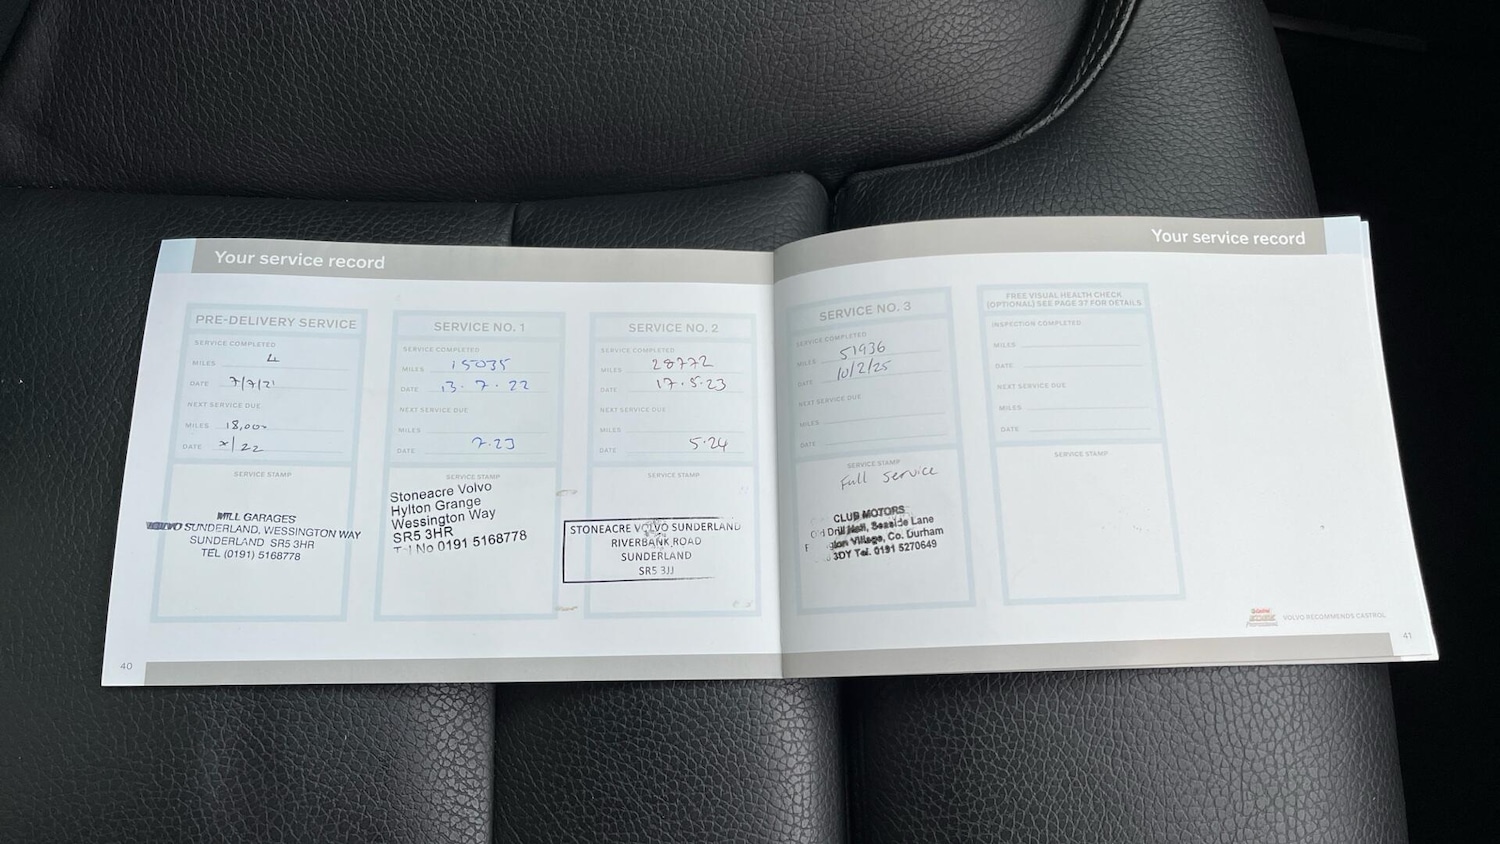 Your service record
PRE-DELIVERY SERVICE
SERVICE COMPLETED
MILES 4
DATE 7/7/21
NEXT SERVICE DUE
MILES 18,000
DATE /22
SERVICE STAMP
MILL GARAGES
VOLVO SUNDERLAND, WESSINGTON WAY
SUNDERLAND SR5 3HR
TEL (0191) 5168778
SERVICE NO. 1
SERVICE COMPLETED
MILES 15035
DATE 13.7.22
NEXT SERVICE DUE
MILES
DATE 7.23
SERVICE STAMP
Stoneacre Volvo
Hylton Grange
Wessington Way
SR5 3HR
No 0191 5168778
SERVICE NO. 2
SERVICE COMPLETED
MILES 28772
DATE 17.5.23
NEXT SERVICE DUE
MILES
DATE 5.24
SERVICE STAMP
STONEACRE VOLVO SUNDERLAND
RIVERBANK ROAD
SUNDERLAND
SR5 3JJ
40
Your service record
SERVICE NO. 3
SERVICE COMPLETED
MILES 51936
DATE 10/2/25
NEXT SERVICE DUE
MILES
DATE
SERVICE STAMP
Full Service
CLUB MOTORS
Old Drill Hall, Seaside Lane
Village, Co. Durham
3DY Tel. 0191 5270649
FREE VISUAL HEALTH CHECK
(OPTIONAL) SEE PAGE 37 FOR DETAILS
INSPECTION COMPLETED
MILES
DATE
NEXT SERVICE DUE
MILES
DATE
SERVICE STAMP
Castrol
Professional
VOLVO RECOMMENDS CASTROL
41